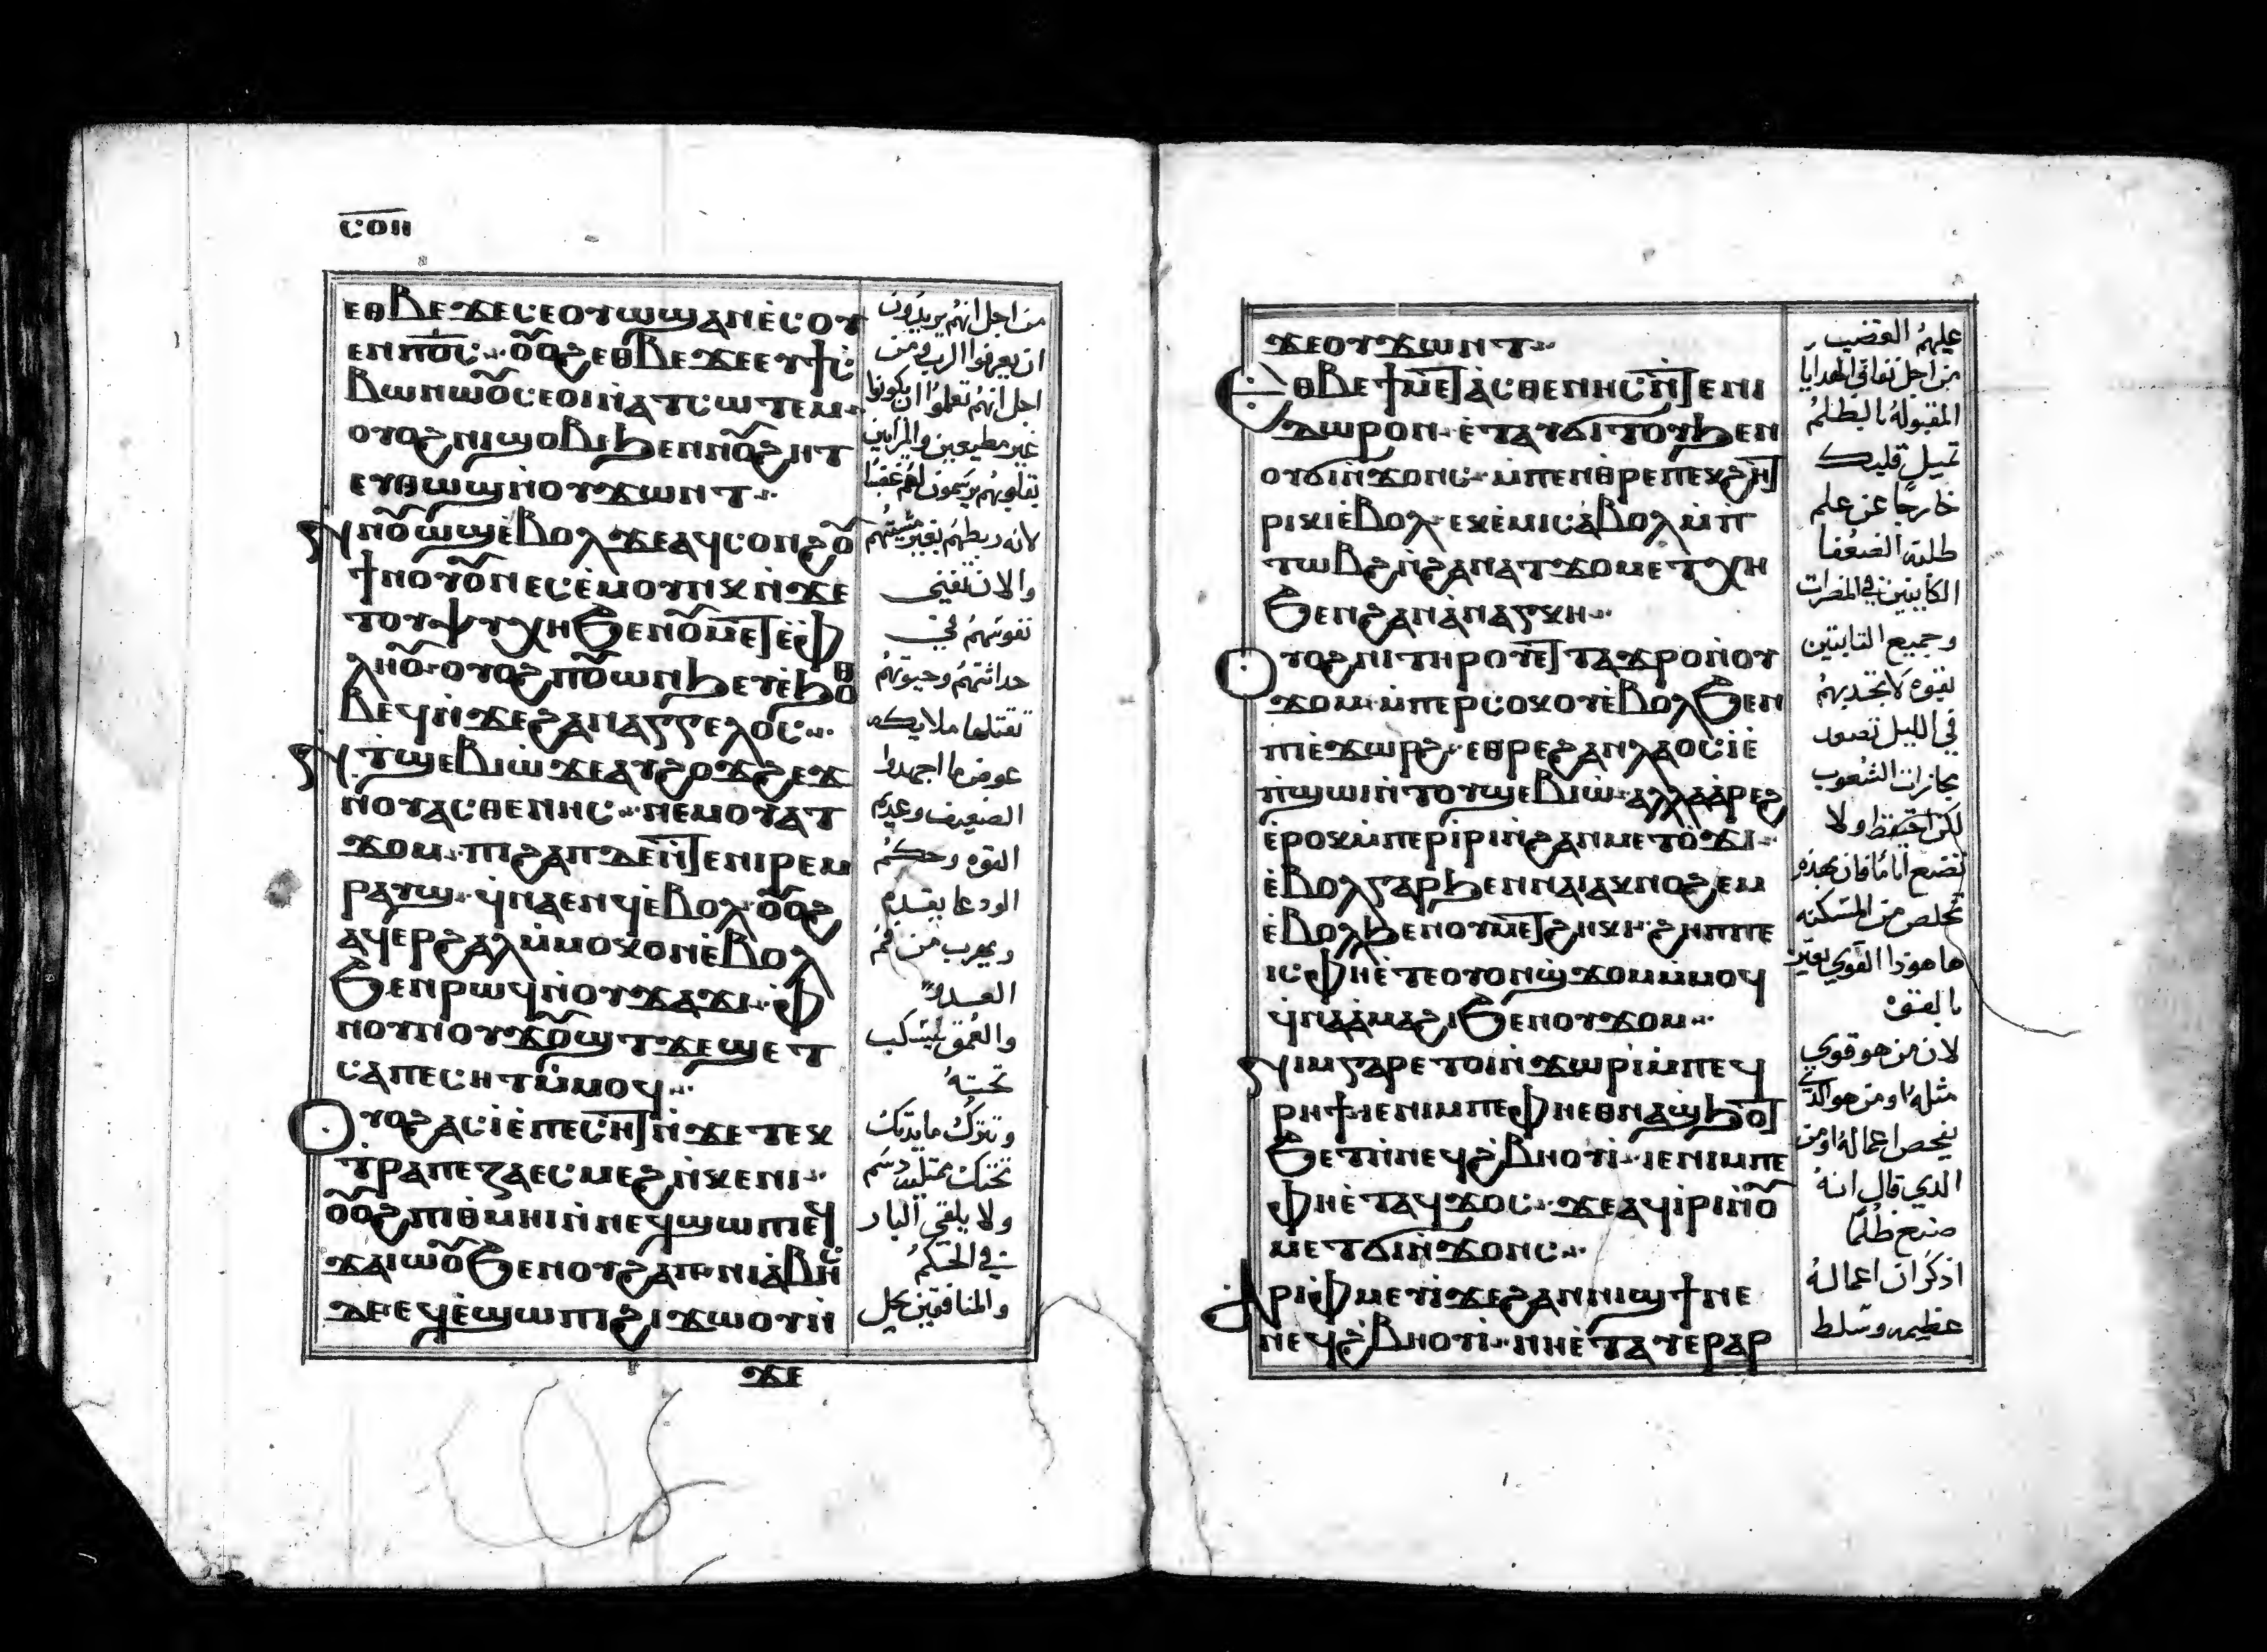 ⲥⲟⲏ
ⲉⲑⲃⲉϫⲉⲥⲉⲟⲩⲱϣⲁⲛⲉ̀ⲥⲟⲩ
ⲉⲛⲡⲟ̅ⲥ̅ ⲟⲟϩ ⲉⲑⲃⲉϫⲉ
ⲃⲱⲛⲱⲟⲥⲉⲟⲓⲛ̀ⲁⲧⲥⲱⲧⲉⲙ
ⲟⲩⲟϩⲛⲓϣⲟⲃⲓϧⲉⲛⲛⲟϩⲏⲧ
ⲉⲩⲑⲱϣⲛ̀ⲟⲩϫⲱⲛⲧ
ⲛⲟⲱϣⲉ̀ⲃⲟⲗϫⲉⲁϥⲥⲟⲛϩⲟ
ϯⲛⲟⲩⲟⲛⲉⲥⲉ̀ⲙⲟⲩⲛⲕⲛ̀ϫⲉ
ⲧⲟⲩⲯⲩⲭⲏϦⲉⲛⲟⲙⲉⲧⲉ̀ⲫ
ⲗⲏⲟ ⲟⲩⲟϩⲡⲟⲱⲛϧ
ⲃⲉϥⲛ̀ϫⲉϩⲁⲛⲁⲅⲅⲉⲗⲟⲥ
ⲧ̀ϣⲉⲃⲓⲱ̀ϫⲉⲁⲩϩⲟϫϩⲉϫ
ⲛⲟⲩⲁⲥⲑⲉⲛⲏⲥ ⲛⲉⲙⲟⲩⲁⲧ
ϫⲟⲙ ⲡⲓϩⲁⲡϫⲉⲛ̀ⲧⲉⲛⲓⲣⲉⲙ
ⲣⲁⲩϣ ϥ̀ⲛⲁⲉⲛϥⲉ̀ⲃⲟⲗ ⲟⲟϩ
ⲁϥⲉⲣϩⲁⲗⲙ̀ⲙⲟⲕⲟⲛⲉ̀ⲃⲟⲗ
Ϧⲉⲛⲣⲱϥⲛ̀ⲟⲩϫⲁϫⲓ ⲫ̀
ⲛⲟⲩⲛⲟⲩϫⲟϣⲧϫⲉϣⲉⲧ
ⲥⲁⲡⲉⲥⲏⲧⲙ̀ⲙⲟϥ
Ⲟⲩⲟϩⲁⲥⲓ̀ⲉ̀ⲡⲉⲥⲏⲧⲛ̀ϫⲉⲧⲉⲕ
ⲧ̀ⲣⲁⲡⲉⲍⲁⲉⲥⲙⲉϩⲛ̀ⲕⲉⲛⲓ
ⲟⲟϩ ⲡⲓⲑ̀ⲙⲏⲓⲛ̀ⲛⲉϥϣⲱⲡⲓ
ϫⲁⲓⲱⲟϦⲉⲛⲟⲩϩⲁⲡ ⲛⲓⲁ̀ⲃⲏⲥ
ϫⲉ ⲉϥⲉ̀ϣⲱⲡⲓϩⲓϫⲱⲟⲩⲛ̀
ϫⲉ
من اجل انهم يريدون
ان يعرفوا الرب ومن
اجل انهم تعلموا ان يكونوا
غير مطيعين والمرايين
بقلوبهم يرسمون لهم غضبا
لانه ربطهم بغير مشيتهم
والان تفني
نفوسهم في
حداثتهم وحيوتهم
تقتلها ملايكه
عوض ما اجهدوا
الضعيف وعديم
القوه وحكم
الودعا يقدم
ويهرب من فم
العدو
والعمق ليسكب
تحته
وتترك مايدتك
تحتك ممتليه دسم
ولا يلقي البار
في الحكم
والمنافقين يحل
ϫⲉⲟⲩϫⲱⲛⲧ
Ⲉⲑⲃⲉϯⲙⲉⲧⲁ̀ⲥⲑⲉⲛⲏⲥⲛ̀ⲧⲉⲛⲓ
ⲇⲱⲣⲟⲛ ⲉ̀ⲧⲁⲩϭⲓⲧⲟⲩϧⲉⲛ
ⲟⲩϭⲓⲛ̀ϫⲟⲛⲥ ⲙ̀ⲡⲉⲛⲑ̀ⲣⲉⲡⲉⲕϩⲏⲧ
ⲣⲓⲕⲓⲉ̀ⲃⲟⲗ ⲉⲕⲉ̀ⲙⲓⲥⲁ̀ⲃⲟⲗⲙ̀ⲡ
ⲧⲱⲃϩⲛ̀ϩⲁⲛⲁⲧϫⲟⲙⲉⲧⲭⲏ
Ϧⲉⲛϩⲁⲛⲁ̀ⲛⲁⲅⲕⲏ
Ⲟⲩⲟϩⲛⲓⲧⲏⲣⲟⲩⲉⲧⲧⲁϫⲣⲟⲛ̀ⲟⲩ
ϫⲟⲙ ⲙ̀ⲡⲉⲣⲥⲟⲕⲟⲩⲉ̀ⲃⲟⲗϦⲉⲛ
ⲡⲓⲉ̀ϫⲱⲣϩ ⲉⲑⲣⲉϩⲁⲛⲗⲁⲟⲥⲓ̀ⲉ̀
ⲡ̀ϣⲱⲓⲛ̀ⲧⲟⲩϣⲉⲃⲓⲱ̀ ⲁⲗⲗⲁⲁ̀ⲣⲉϩ
ⲉ̀ⲣⲟⲕⲙ̀ⲡⲉⲣⲓ̀ⲣⲓⲛ̀ϩⲁⲛⲙⲉⲧⲟ̀ϫⲓ
ⲉ̀ⲃⲟⲗⲅⲁⲣϧⲉⲛⲛⲁⲓⲁⲕⲛⲟϩⲉⲙ
ⲉ̀ⲃⲟⲗϧⲉⲛⲟⲩⲙⲉⲧϩⲏⲕⲓ ϩⲏⲡⲡⲉ
ⲓⲥ ⲫⲏⲉ̀ⲧⲉⲟⲩⲟⲛϣ̀ϫⲟⲙⲙ̀ⲙⲟϥ
ϥ̀ⲛⲁⲁ̀ⲙⲁϩⲓϦⲉⲛⲟⲩϫⲟⲙ
ⲛⲓⲙⲅⲁⲣⲉⲧⲟⲓⲛ̀ϫⲱⲣⲓⲙ̀ⲡⲉϥ
ⲣⲏϯⲓⲉⲛⲓⲙⲡⲉⲫⲏⲉⲑⲛⲁϣ̀ϧⲟⲧ
Ϧⲉⲧⲛ̀ⲛⲉϥϩ̀ⲃⲏⲟⲩⲓ̀ ⲓⲉⲛⲓⲙⲡⲉ
ⲫⲏⲉ̀ⲧⲁϥϫⲟⲥ ϫⲉⲁϥⲓ̀ⲣⲓⲛ̀ⲟ
ⲙⲉⲧϭⲓⲛ̀ϫⲟⲛⲥ
Ⲁⲣⲓⲫ̀ⲙⲉⲩⲓ̀ϫⲉϩⲁⲛⲛⲓϣϯⲛⲉ
ⲛⲉϥϩ̀ⲃⲏⲟⲩⲓ̀ ⲛⲏⲉ̀ⲧⲁⲩⲉⲣⲁⲣ
عليهم القضيب
من اجل نفاق الهدايا
المقبوله بالظلم
تميل قلبك
خارجا عن علم
طلبة الضعفا
الكاينين في المضرات
وجميع الثابتين
بقوه لا تجذبهم
في الليل تصعد
بجازات الشعوب
لكن احتفظ ولا
تصنع اثاما فان بهذه
تخلص من المسكنه
ها هوذا القوي يعتز
بالقوه
لان من هو قوي
مثله او من هو الذي
يفحص اعماله او من
الذي قال انه
صنع ظلما
اذكر ان اعماله
عظيمه وتسلط